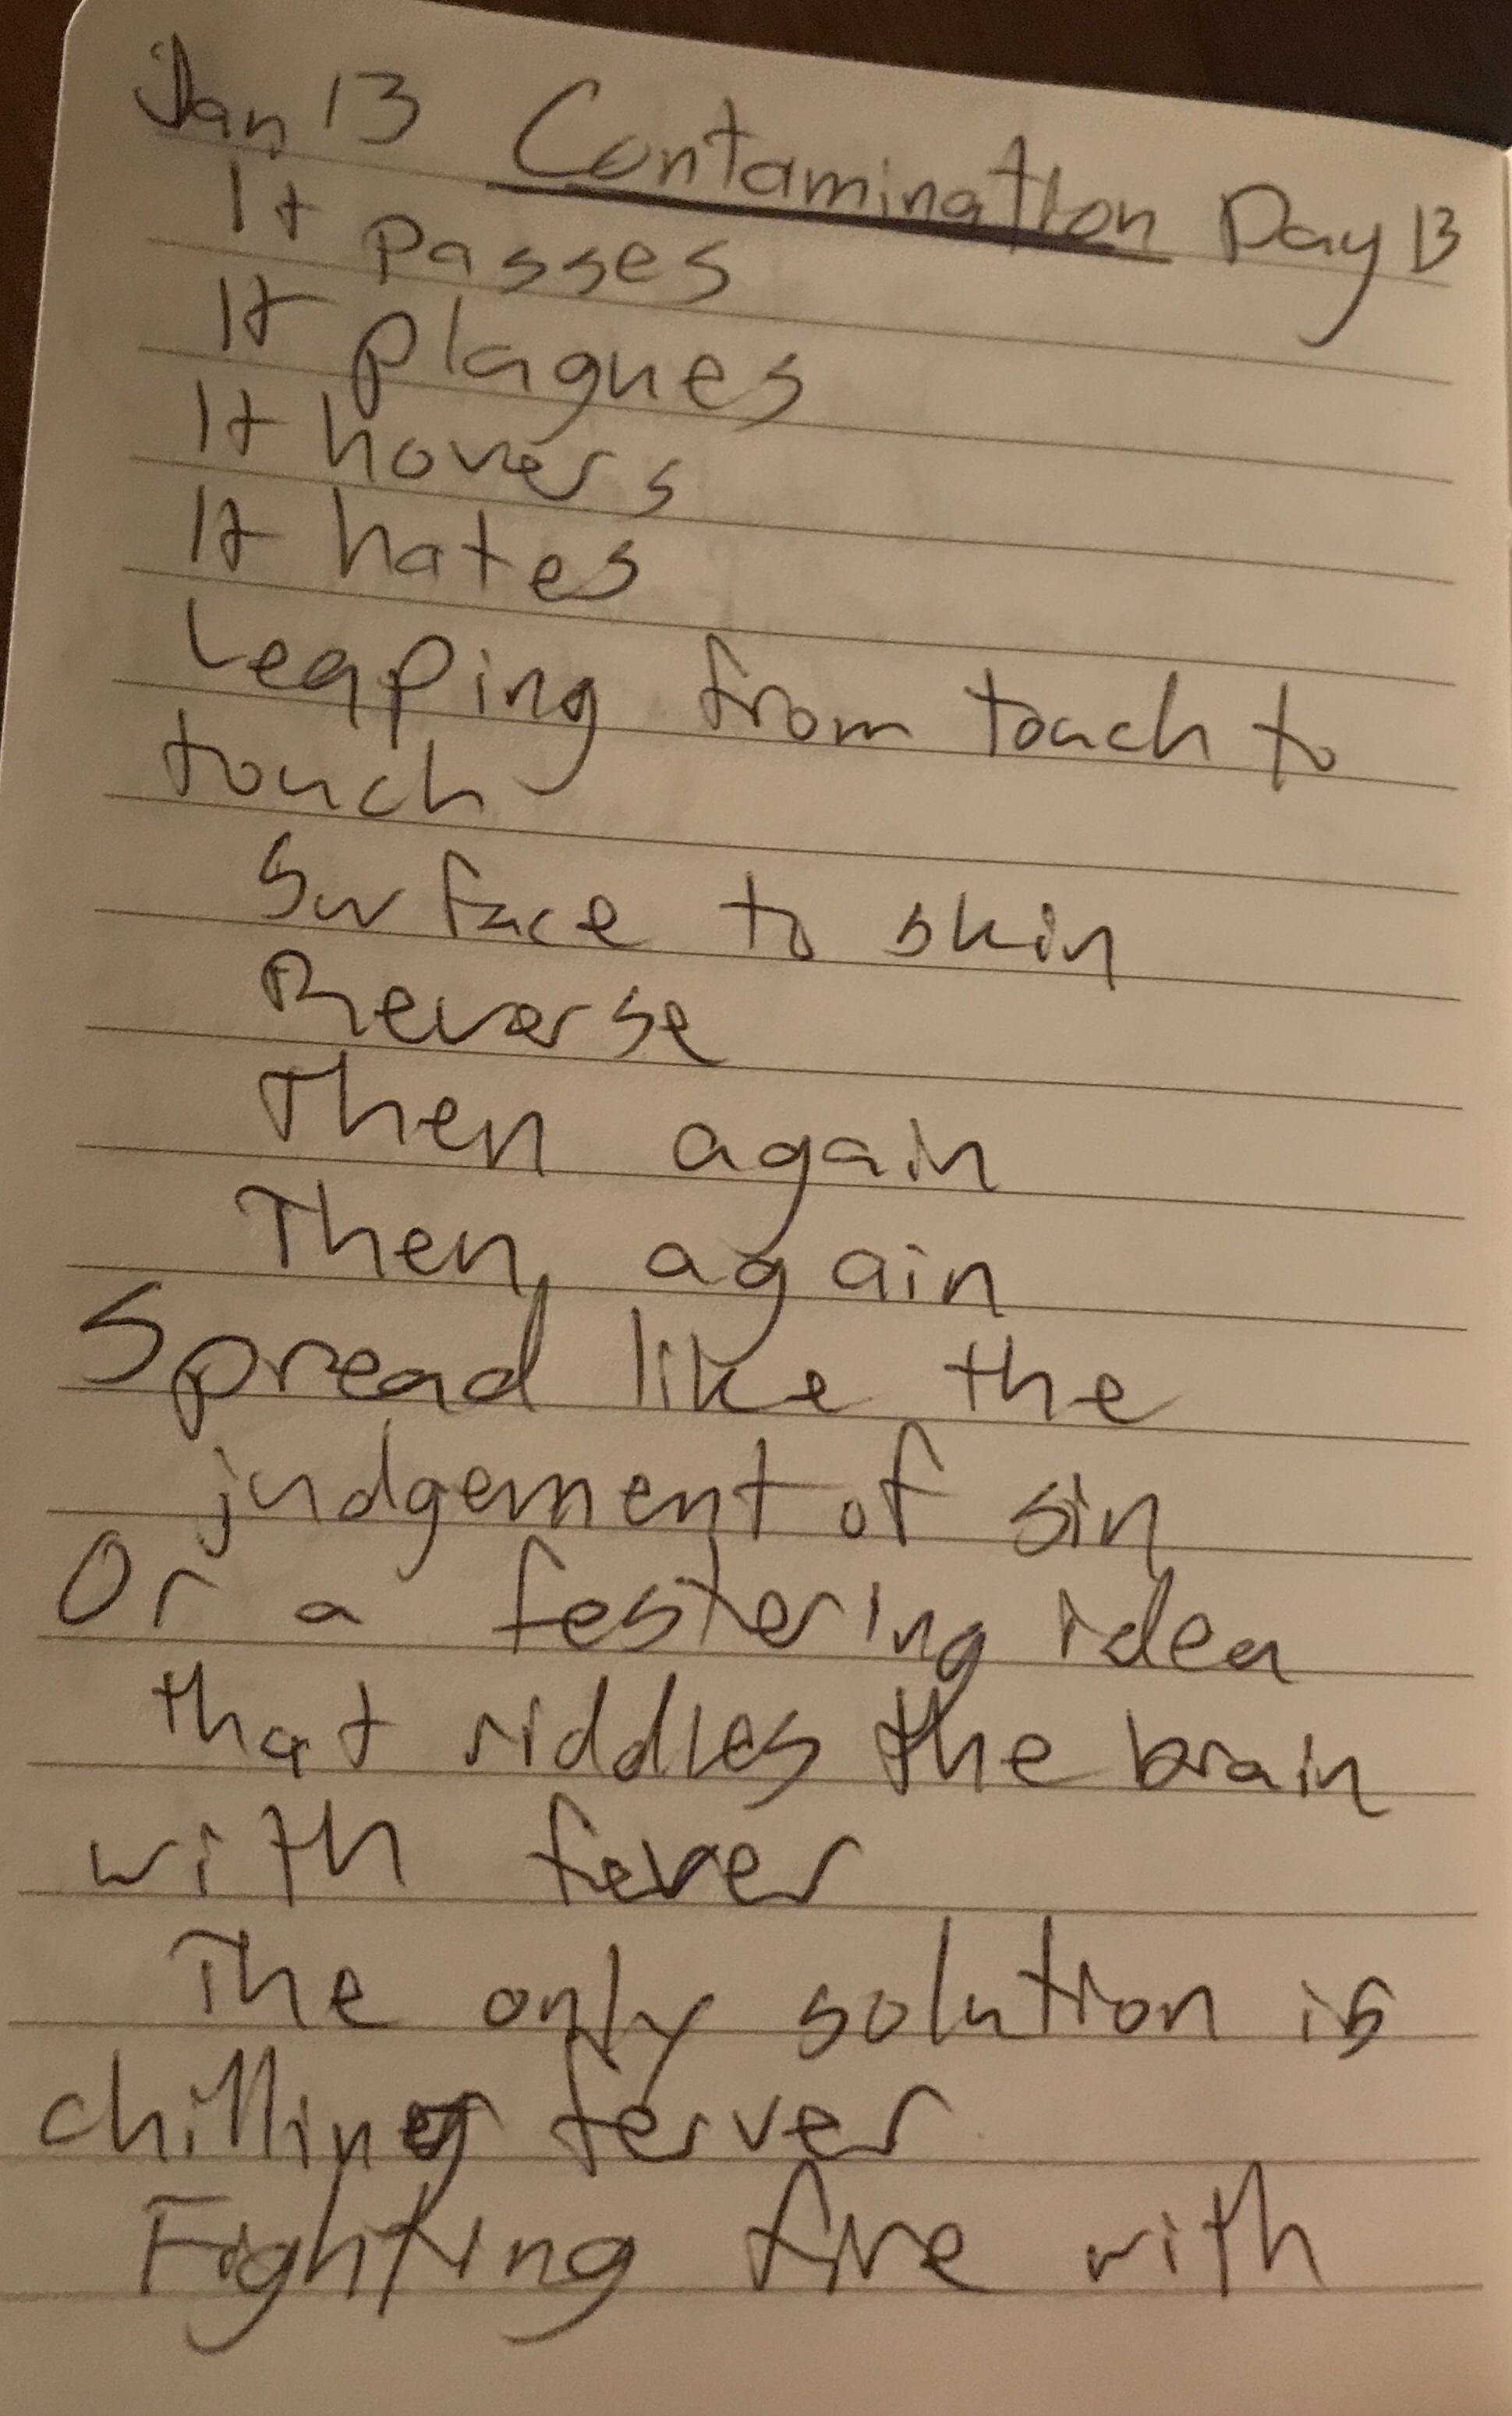 Jan 13 Contamination Day 13
It passes
It plagues
It hovers
It hates
Leaping from touch to
touch
Surface to skin
Reverse
Then again
Then again
Spread like the
judgement of sin
Or a festering idea
that riddles the brain
with fever
The only solution is
chilling ferver
Fighting fire with